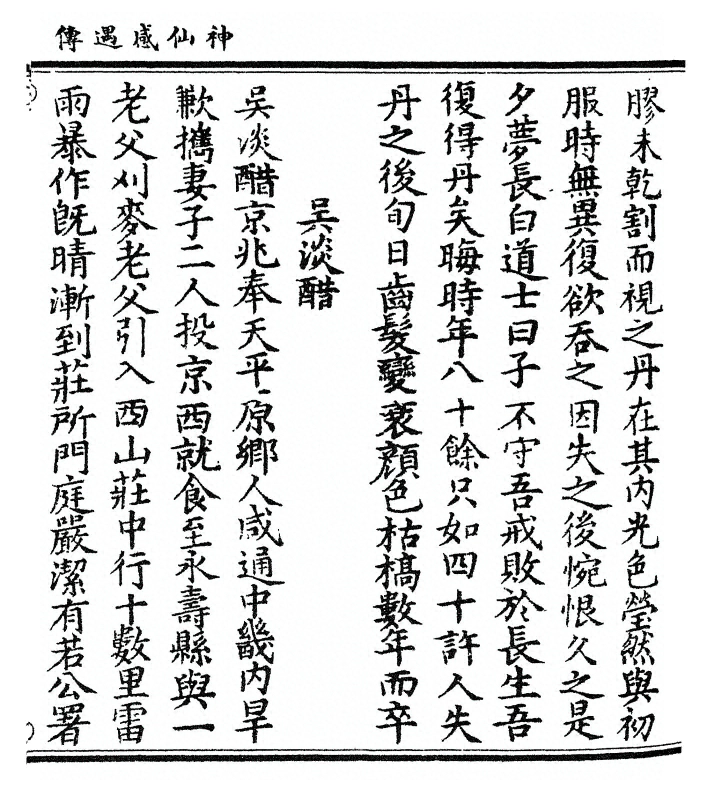 神仙感遇傳
膠未乾割而視之丹在其內光色瑩然與初
服時無異復欲吞之因失之後惋恨久之是
夕夢長白道士曰子不守吾戒敗於長生吾
復得丹矣晦時年八十餘只如四十許人失
丹之後旬日齒髮變衰顏色枯槁數年而卒
吳淡醋
吳淡醋京兆奉天平原鄉人咸通中畿內旱
歉攜妻子二人投京西就食至永壽縣與一
老父刈麥老父引入西山莊中行十數里雷
雨暴作旣晴漸到莊所門庭嚴潔有若公署